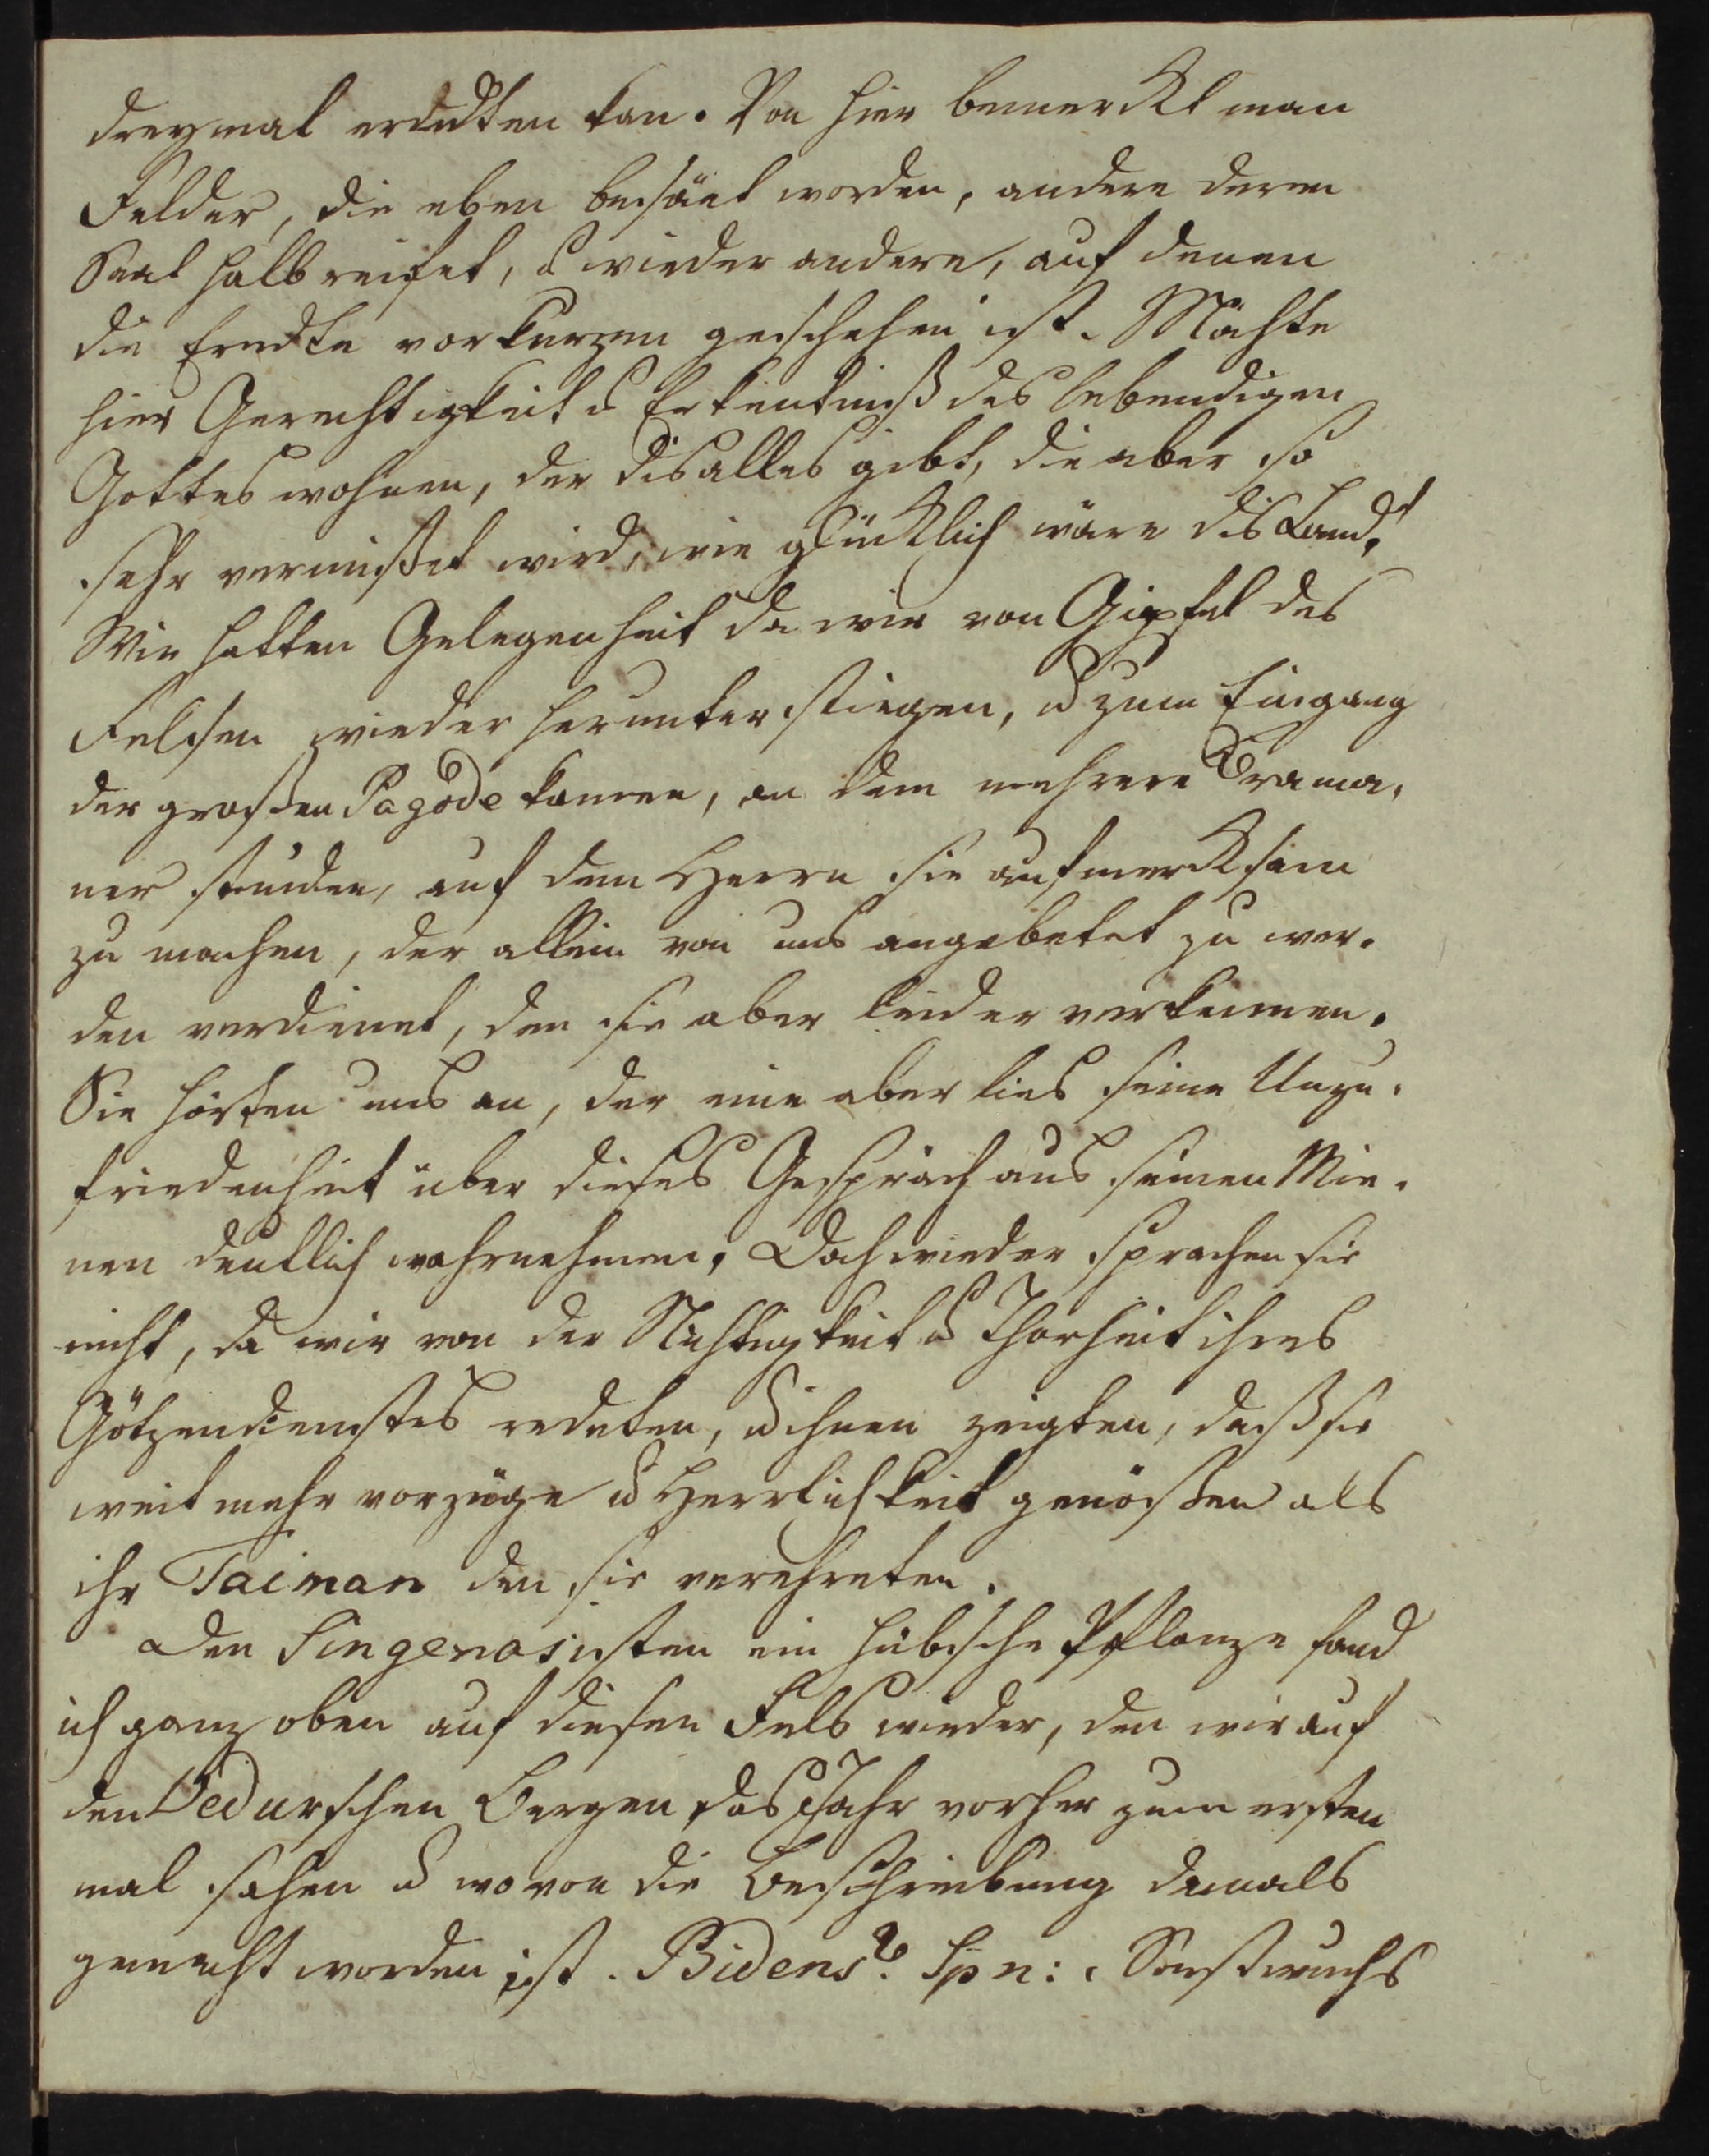 dreymal erndten kan. Von hier bemerckt man
Felder, die eben besäet worden, andere deren
Saat halb reifet, u wieder andere, auf denen
die Erndte vor kurzen geschehen ist. Möchte
hier Gerechtigkeit u Erkentniß des lebendigen
Gottes wohnen, der dis alles gibt, die aber so
sehr vermißet wird, wie glücklich wäre dis Land!
Wir hatten Gelegenheit da wir von Gipfel des
Felsen wieder herunter stiegen, u zum Eingang
der großen Pagode kamen, an dem mehrere Brama-
ner stunden, auf dem Herrn sie aufmercksam
zu machen, der allein von uns angebetet zu wer-
den verdienet, den sie aber leider verkennen.
Sie hörten uns an, der eine aber lies seine Unzu-
friedenheit über dieses Gespräch aus seinen Mie-
nen deutlich wahrnehmen. Doch wieder sprachen sie
nicht, da wir von der Nichtigkeit u Thorheit ihres
Götzendienstes redeten, u ihnen zeigten, daß sie
weit mehr vorzüge u Herrlichkeit genößen als
ihr Taiman den sie verehreten.
Den Singenosisten ein hübsche Pflanze fand
ich ganz oben auf diesen Fels wieder, den wir auf
den Vedurschen Bergen das Jahr vorher zum ersten
mal sahen u wovon die Beschreibung damals
gemacht worden ist. Bidens? Sp n: Sonst wuchs